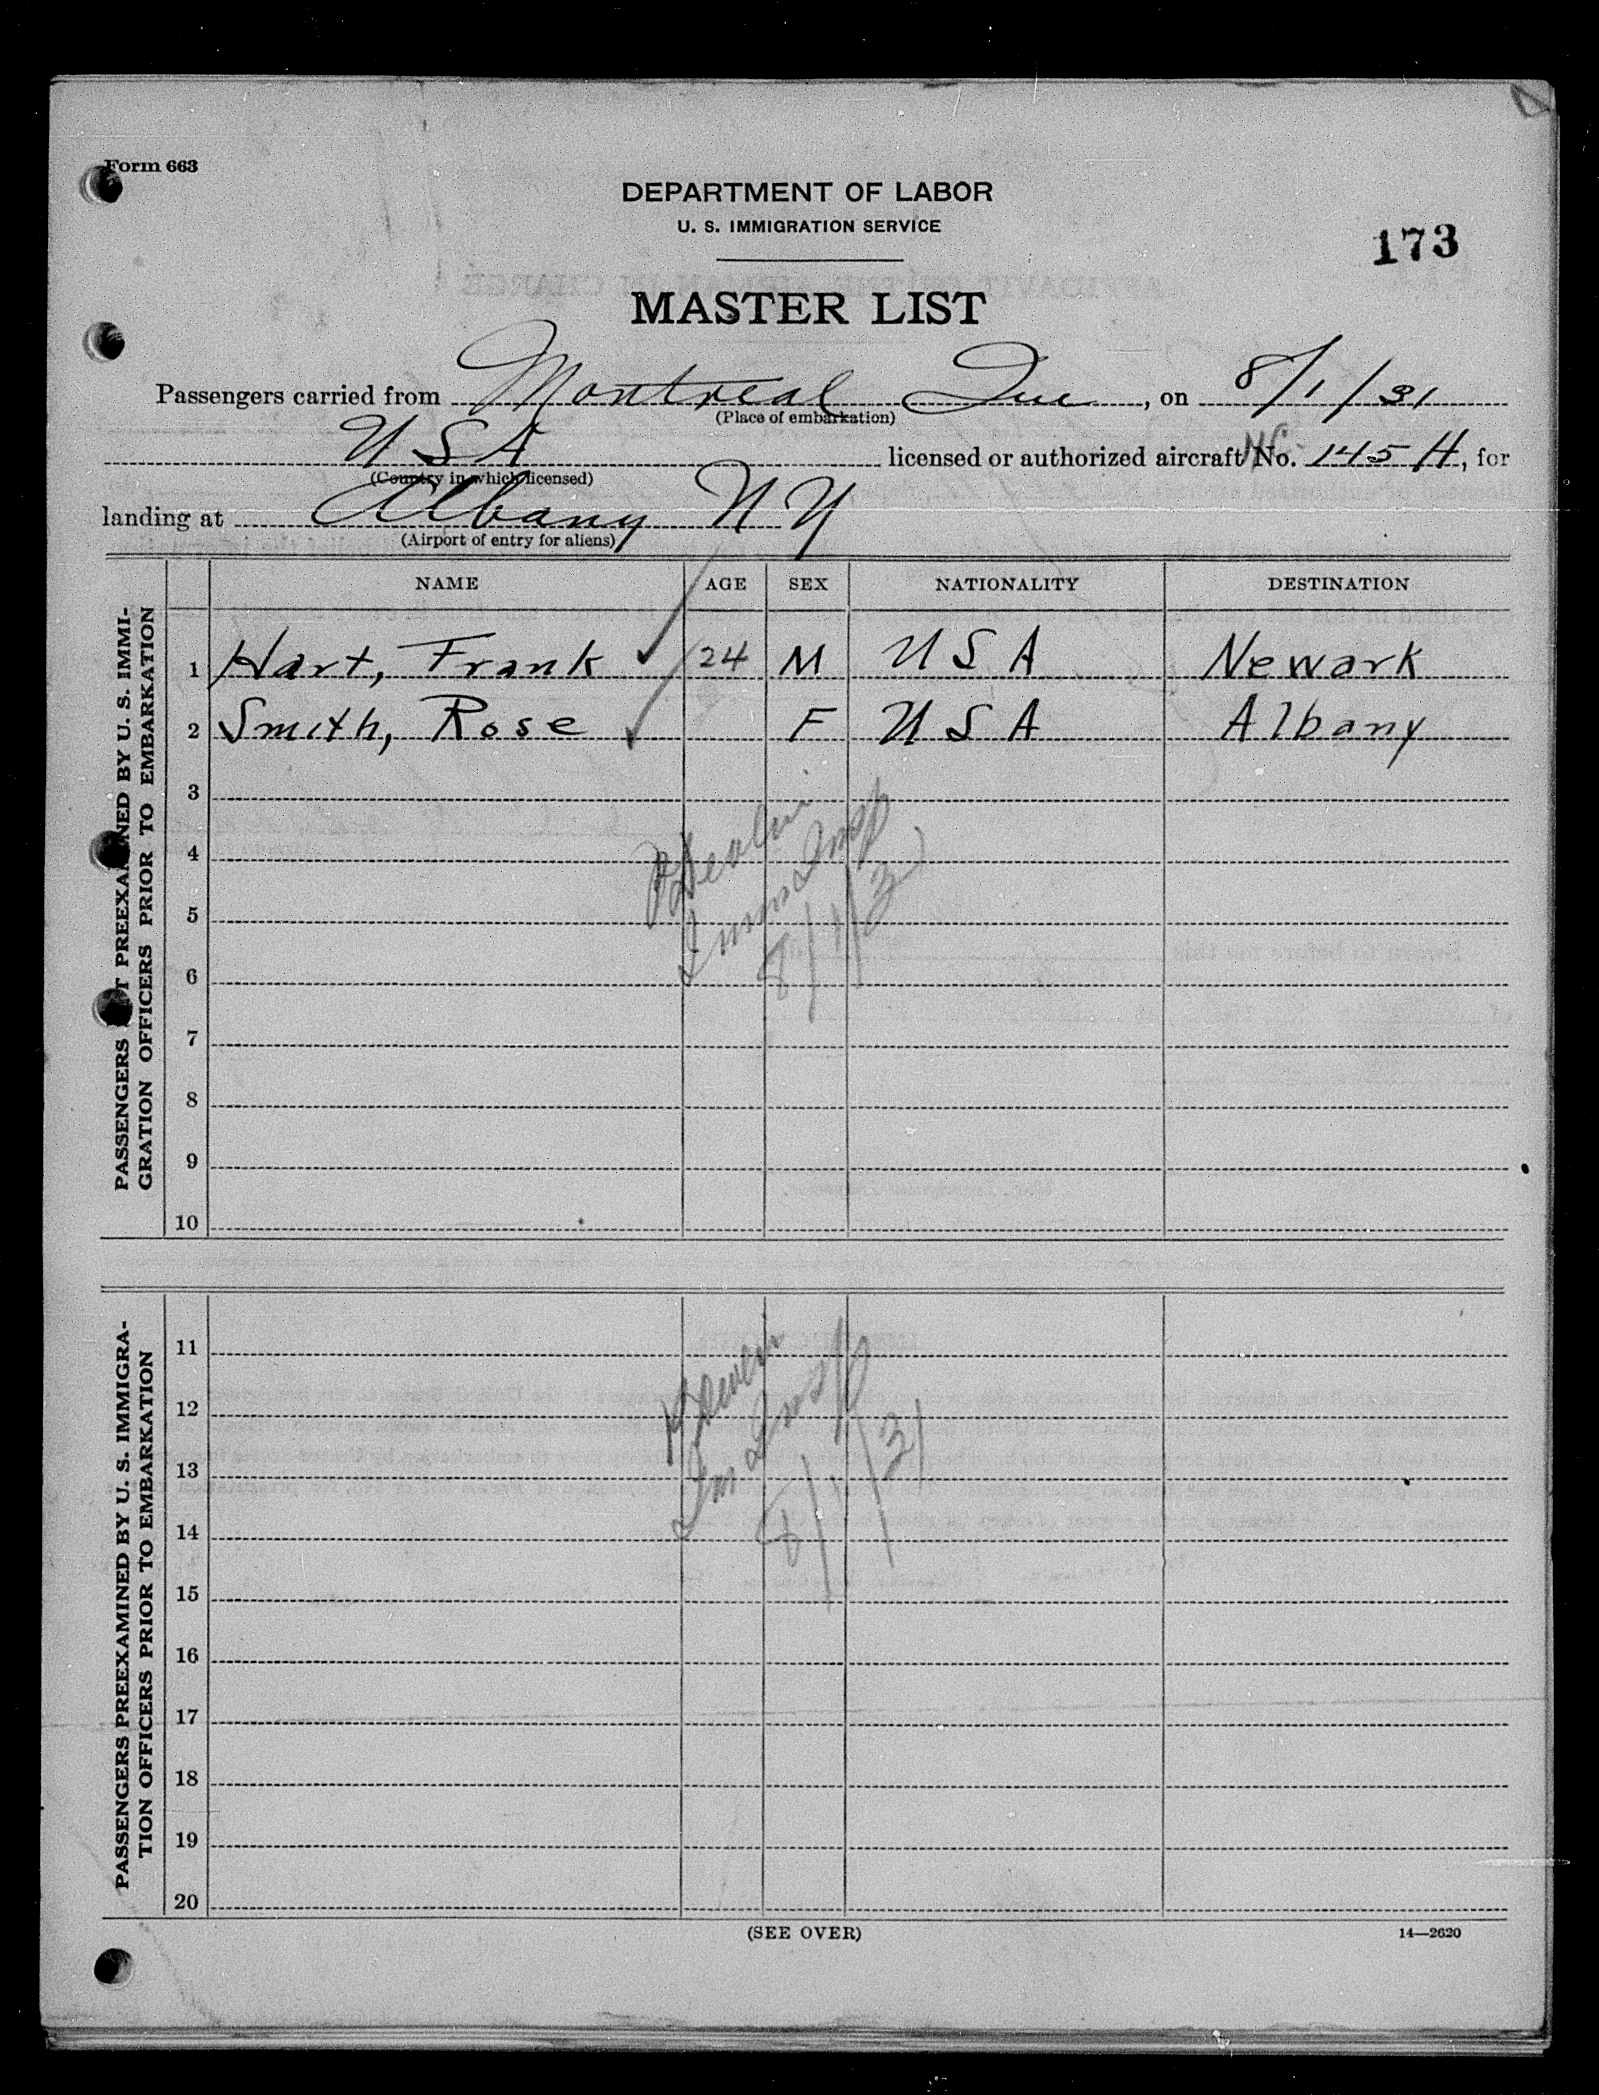 Form 663
DEPARTMENT OF LABOR
U. S. IMMIGRATION SERVICE
173
MASTER LIST
Passengers carried from Montreal Que, on 8/1/31
(Place of embarkation)
USA licensed or authorized aircraft No. NC- 145H, for
(Country in which licensed)
landing at Albany N Y
(Airport of entry for aliens)
NAME AGE SEX NATIONALITY DESTINATION
PASSENGERS NOT PREEXAMINED BY U. S. IMMI-
GRATION OFFICERS PRIOR TO EMBARKATION
1 Hart, Frank 24 M USA Newark
2 Smith, Rose F USA Albany
3
4
5
6
7
8
9
10
Imm Insp
8/1/31
PASSENGERS PREEXAMINED BY U. S. IMMIGRA-
TION OFFICERS PRIOR TO EMBARKATION
11
12
13
14
15
16
17
18
19
20
Im Insp
8/1/31
(SEE OVER)
14—2620